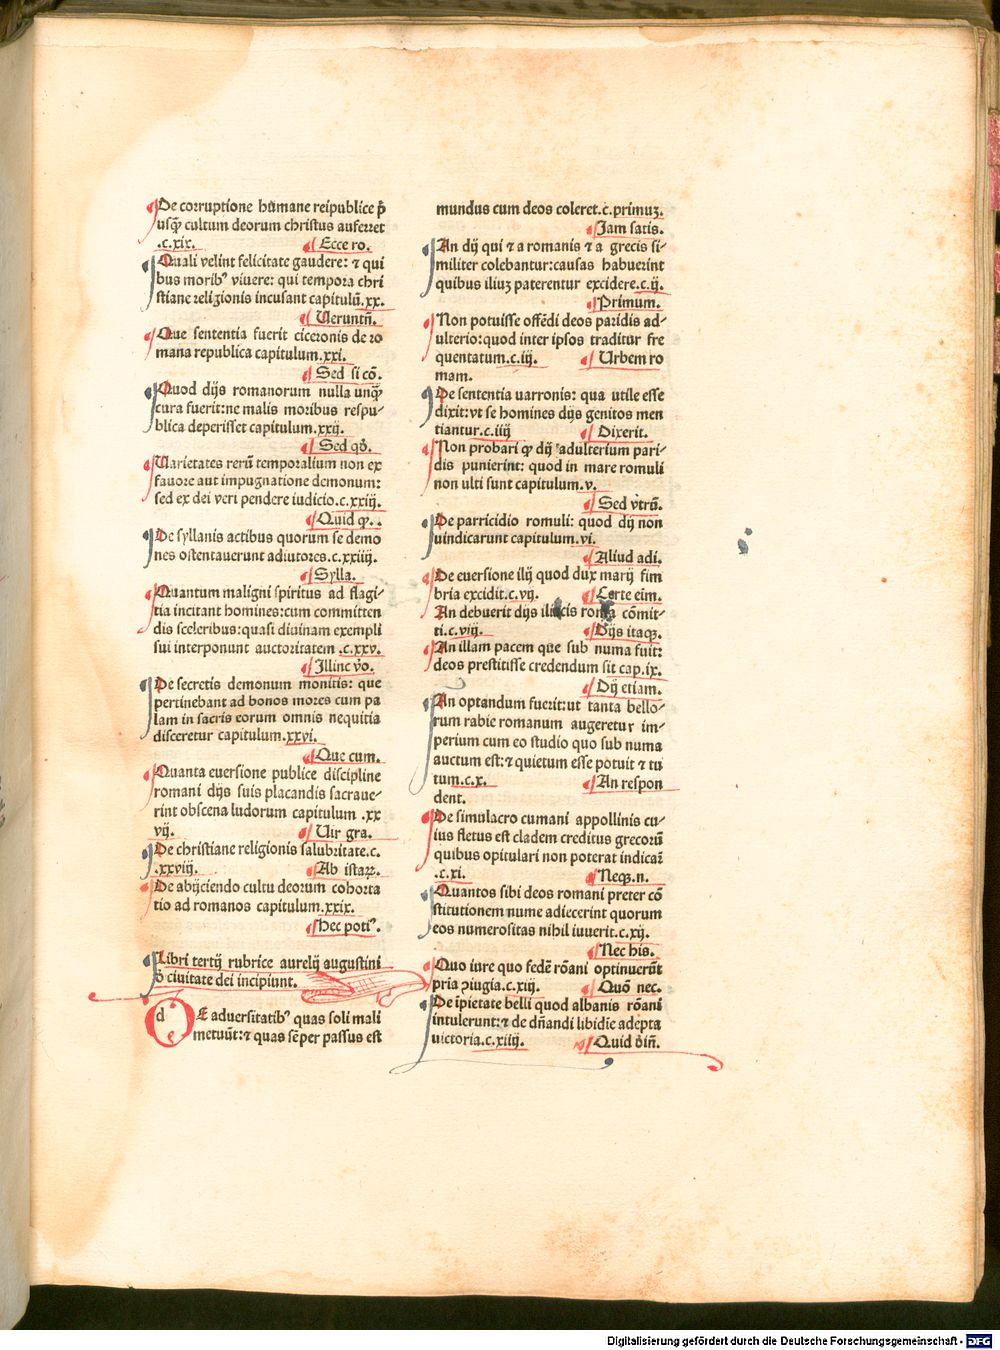 De corruptione humane reipublice p̄
usqꝫ cultum deorum christus auferret
.c.xix. ¶ Ecce ro.
Quali velint felicitate gaudere: ⁊ qui
bus moribꝰ viuere: qui tempora chri
stiane religionis incusant capitulū.xx.
¶ Ueruntn̄.
Que sententia fuerit ciceronis de ro
mana republica capitulum.xxi.
¶ Sed si cō.
Quod dijs romanorum nulla unqꝫ
cura fuerit:ne malis moribus respu⸗
blica deperisset capitulum.xxij.
¶ Sed qō.
Uarietates rerū temporalium non ex
fauore aut impugnatione demonum:
sed ex dei veri pendere iudicio.c.xxiij.
¶ Quid qꝫ.
De syllanis actibus quorum se demo
nes ostentauerunt adiutores.c.xxiiij.
¶ Sylla.
Quantum maligni spiritus ad flagi⸗
tia incitant homines:cum committen
dis sceleribus:quasi diuinam exempli
sui interponunt auctoritatem .c.xxv.
¶ Illinc v̄o.
De secretis demonum monitis: que
pertinebant ad bonos mores cum pa
lam in sacris eorum omnis nequitia
disceretur capitulum.xxvi.
¶ Que cum.
Quanta euersione publice discipline
romani dijs suis placandis sacraue⸗
rint obscena ludorum capitulum .xx
vij. ¶ Uir gra.
De christiane religionis salubritate.c.
.xxviij. ¶ Ab istaꝝ.
De abijciendo cultu deorum cohorta
tio ad romanos capitulum.xxix.
¶ Hec potiꝰ.
Libri tertij rubrice aurelij augustini
d̄ ciuitate dei incipiunt.
dE aduersitatibꝰ quas soli mali
metuūt:⁊ quas sēper passus est
mundus cum deos coleret.c.primuꝫ.
¶ Iam satis.
An dij qui ⁊ a romanis ⁊ a grecis si⸗
militer colebantur:causas habuerint
quibus iliuꝫ paterentur excidere.c.ij.
¶ Primum.
Non potuisse offēdi deos paridis ad⸗
ulterio:quod inter ipsos traditur fre
quentatum.c.iij. ¶ Urbem ro
mam.
De sententia uarronis: qua utile esse
dixit:vt se homines dijs genitos men
tiantur.c.iiij ¶ Dixerit.
Non probari qꝫ dij adulterium pari⸗
dis punierint: quod in mare romuli
non ulti sunt capitulum.v.
¶ Sed vtrū.
De parricidio romuli: quod dij non
uindicarunt capitulum.vi.
¶ Aliud adi.
De euersione ilij quod dux marij fim
bria excidit.c.vij. ¶ Certe eim.
An debuerit dijs iliacis roma cōmit⸗
ti.c.viij. ¶ Dijs itaqꝫ.
An illam pacem que sub numa fuit:
deos prestitisse credendum sit cap.ix.
¶ Dij etiam.
An optandum fuerit:ut tanta bello⸗
rum rabie romanum augeretur im⸗
perium cum eo studio quo sub numa
auctum est:⁊ quietum esse potuit ⁊ tu
tum.c.x. ¶ An respon
dent.
De simulacro cumani appollinis cu⸗
ius fletus est cladem creditus grecorū
quibus opitulari non poterat indicaꝛ
.c.xi. ¶ Neqꝫ.n.
Quantos sibi deos romani preter cō
stitutionem nume adiecerint quorum
eos numerositas nihil iuuerit.c.xij.
¶ Nec his.
Quo iure quo federe rōani optinuerūt
pria ꝯiugia.c.xiij. ¶ Quō nec.
De īpietate belli quod albanis rōani
intulerunt:⁊ de dn̄andi libidie adepta
uictoria.c.xiiij. ¶ Quid d̄in̄.
Digitalisierung gefördert durch die Deutsche Forschungsgemeinschaft - DFG